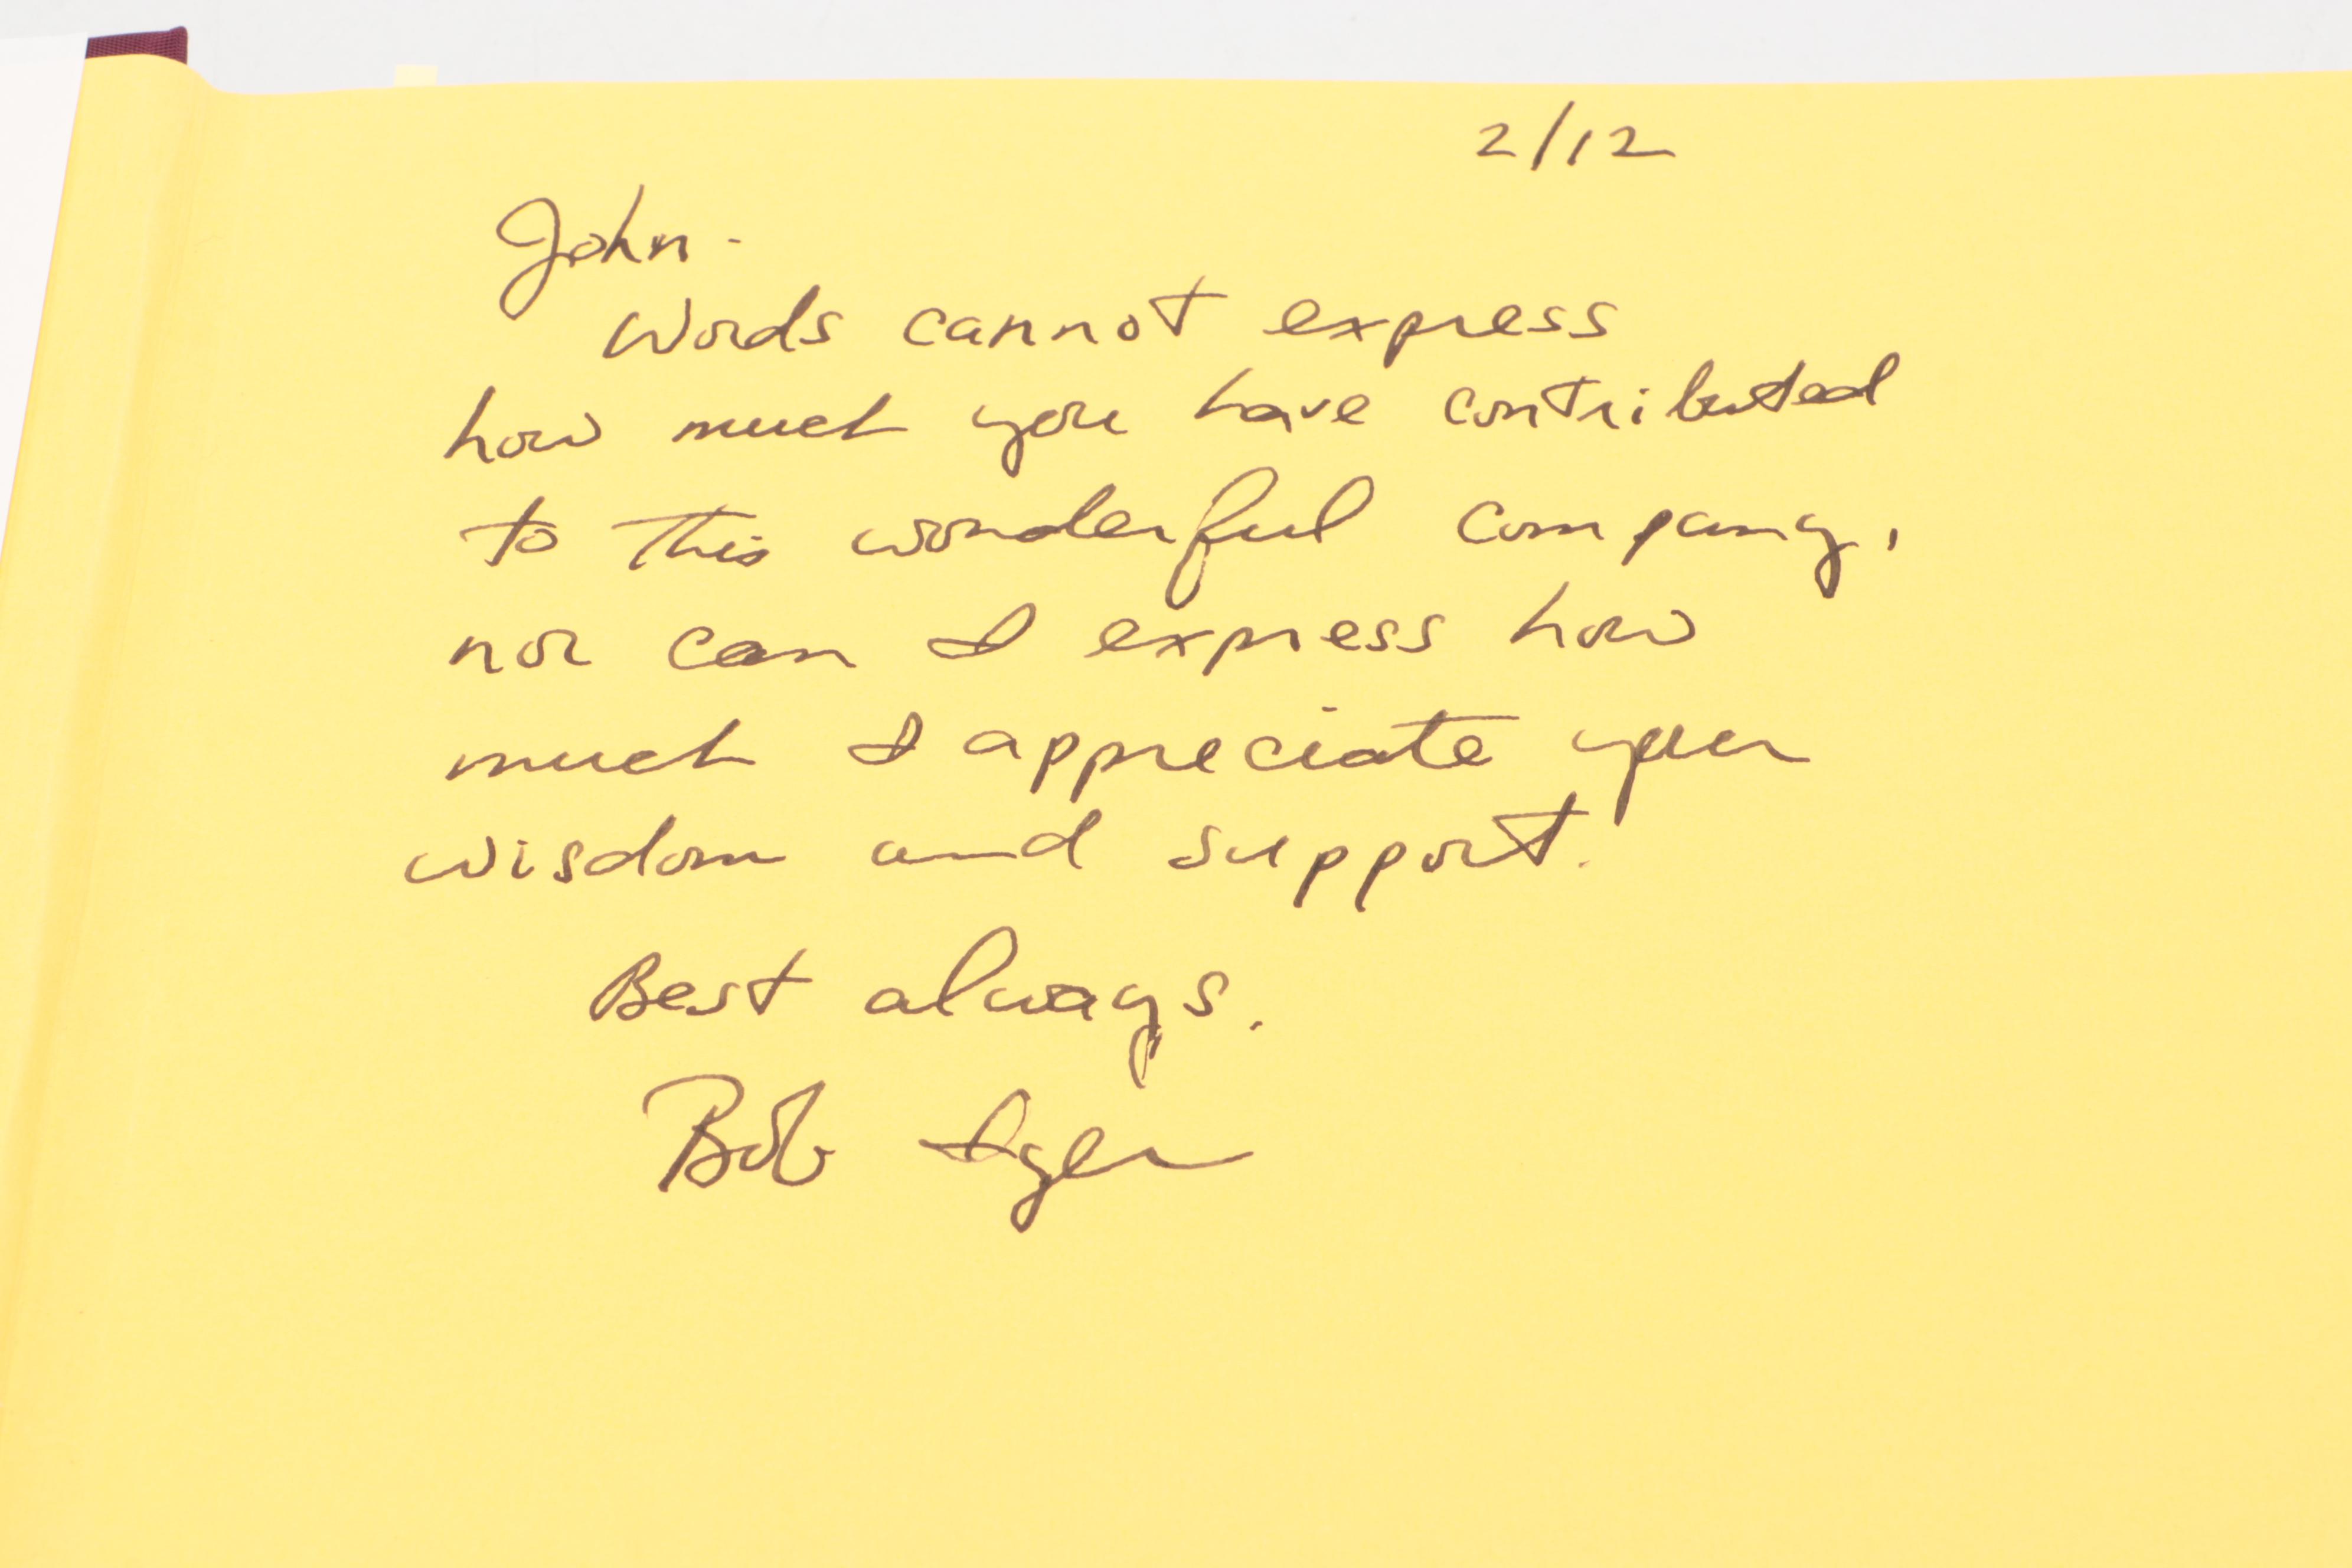 2/12
John -
Words cannot express
how much you have contributed
to this wonderful company,
nor can I express how
much I appreciate your
wisdom and support.
Best always.
Bob Iger